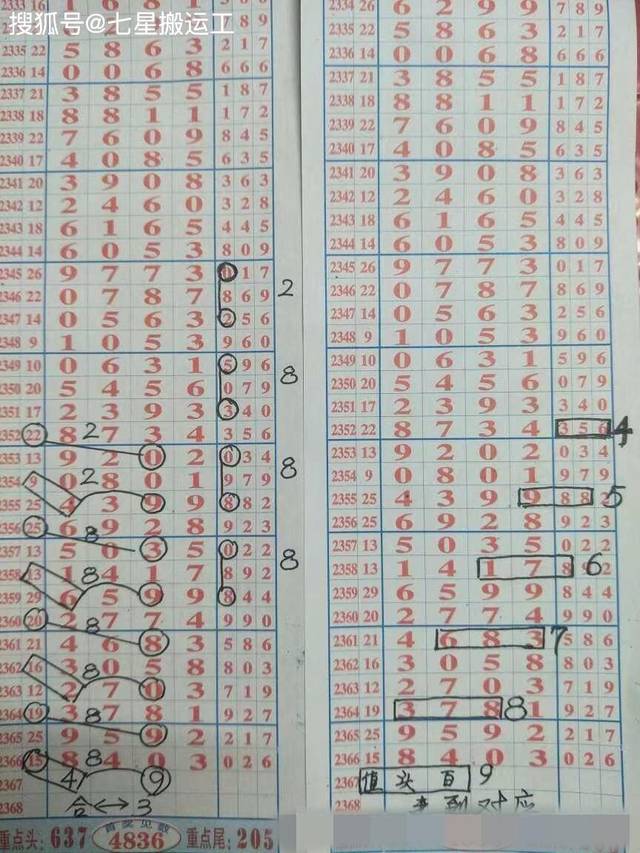 搜狐号@七星搬运工
2335 22 5 8 6 3 2 1 7
2336 14 0 0 6 8 6 6 8
2337 21 3 8 5 5 1 8 7
2338 18 8 8 1 1 1 7 2
2339 22 7 6 0 9 8 4 5
2340 17 4 0 8 5 6 3 5
2341 20 3 9 0 8 3 6 3
2342 12 2 4 6 0 3 2 8
2343 18 6 1 6 5 4 4 5
2344 14 6 0 5 3 8 0 9
2345 26 9 7 7 3 0 1 7
2346 22 0 7 8 7 8 6 9 2
2347 14 0 5 6 3 2 5 6
2348 9 1 0 5 3 9 6 0
2349 10 0 6 3 1 5 9 6
2350 20 5 4 5 6 0 7 9 8
2351 17 2 3 9 3 3 4 0
2352 22 8 2 7 3 4 3 5 6
2353 13 9 2 0 2 0 3 4
2354 9 0 2 8 0 1 9 7 9 8
2355 25 4 3 9 9 8 8 2
2356 25 6 8 9 2 8 9 2 3
2357 13 5 0 3 5 0 2 2
2358 13 1 8 4 1 7 8 9 2 8
2359 29 6 5 9 9 8 4 4
2360 20 2 8 7 7 4 9 9 0
2361 21 4 6 8 3 5 8 6
2362 16 3 8 0 5 8 8 0 3
2363 12 2 7 0 3 7 1 9
2364 19 3 8 7 8 1 9 2 7
2365 25 9 5 9 2 2 1 7
2366 15 8 8 4 0 3 0 2 6
2367 4 9
2368 合↔3
重点头: 637 首奖见数 4836 重点尾: 205
2334 26 6 2 9 9 7 8 9
2335 22 5 8 6 3 2 1 7
2336 14 0 0 6 8 6 6 8
2337 21 3 8 5 5 1 8 7
2338 18 8 8 1 1 1 7 2
2339 22 7 6 0 9 8 4 5
2340 17 4 0 8 5 6 3 5
2341 20 3 9 0 8 3 6 3
2342 12 2 4 6 0 3 2 8
2343 18 6 1 6 5 4 4 5
2344 14 6 0 5 3 8 0 9
2345 26 9 7 7 3 0 1 7
2346 22 0 7 8 7 8 6 9
2347 14 0 5 6 3 2 5 6
2348 9 1 0 5 3 9 6 0
2349 10 0 6 3 1 5 9 6
2350 20 5 4 5 6 0 7 9
2351 17 2 3 9 3 3 4 0
2352 22 8 7 3 4 3 5 6 4
2353 13 9 2 0 2 0 3 4
2354 9 0 8 0 1 9 7 9
2355 25 4 3 9 9 8 8 5
2356 25 6 9 2 8 9 2 3
2357 13 5 0 3 5 0 2 2
2358 13 1 4 1 7 8 9 2 6
2359 29 6 5 9 9 8 4 4
2360 20 2 7 7 4 9 9 0
2361 21 4 6 8 3 7 5 8 6
2362 16 3 0 5 8 8 0 3
2363 12 2 7 0 3 7 1 9
2364 19 3 7 8 8 1 9 2 7
2365 25 9 5 9 2 2 1 7
2366 15 8 4 0 3 0 2 6
2367 值 头 百 9
2368 对应